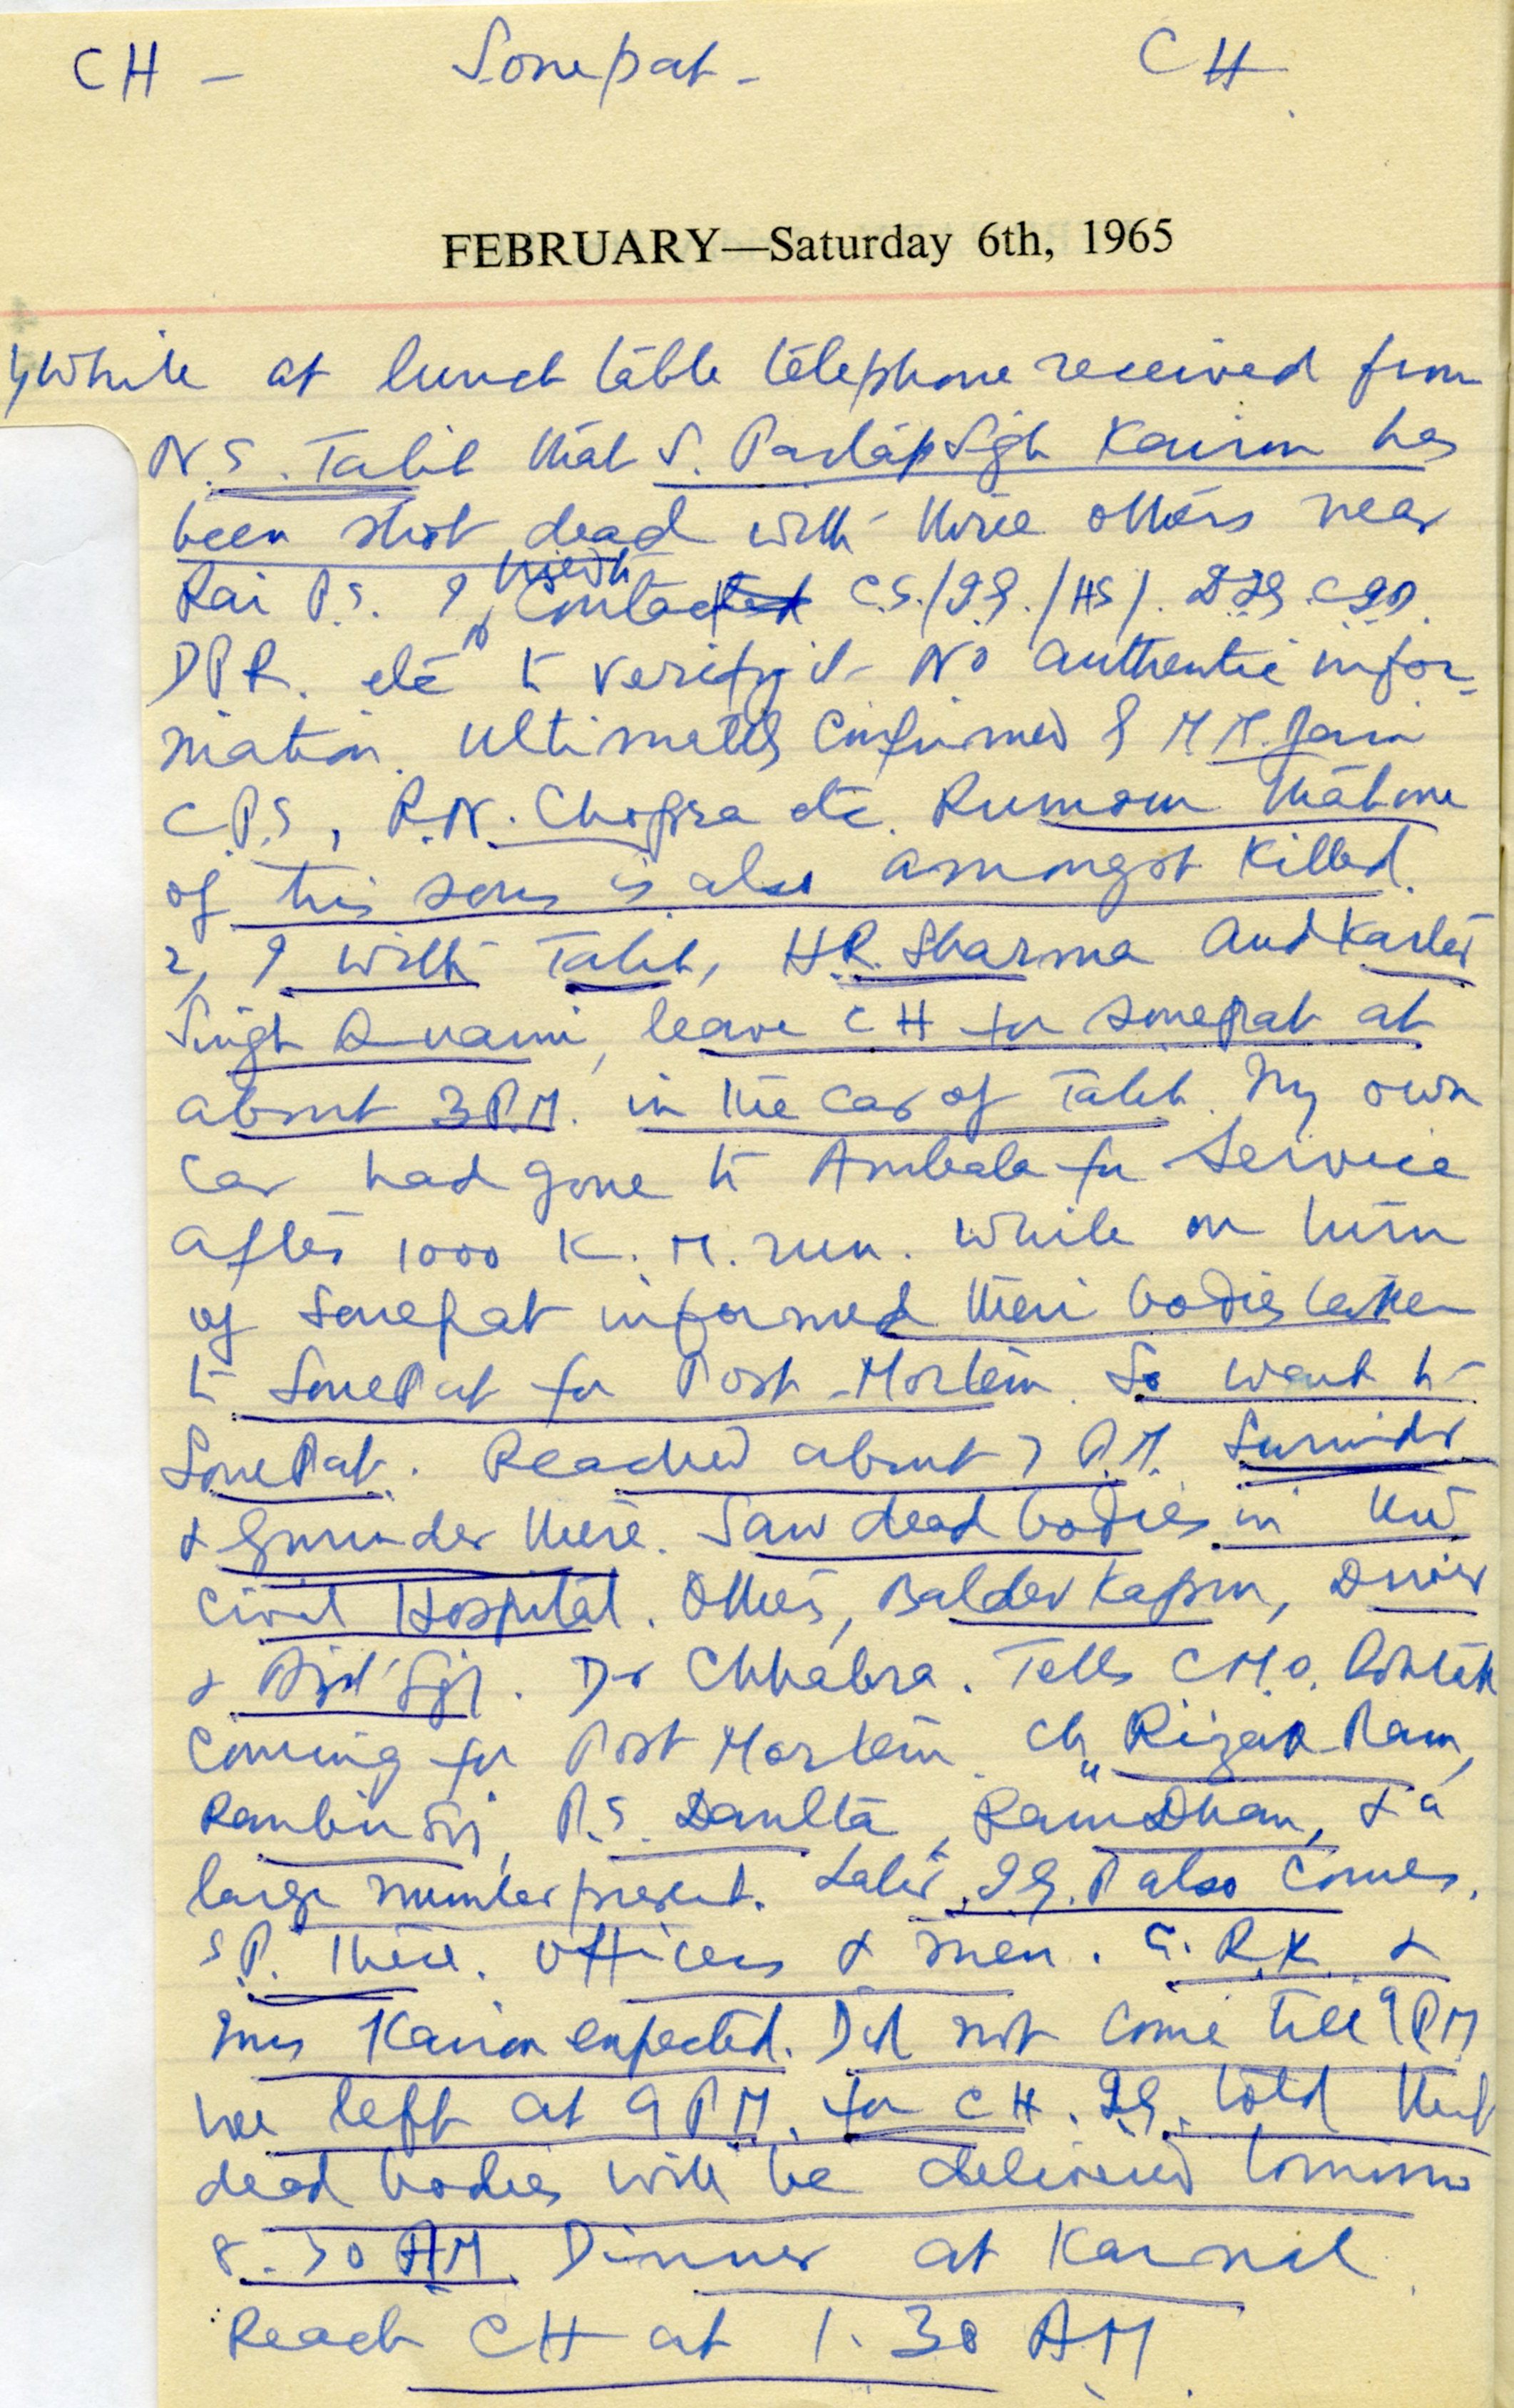 CH - Sonepat - CH
FEBRUARY—Saturday 6th, 1965
1, While at lunch table telephone received from
N.S. Talib that S. Partap Sgh Kairon has
been shot dead with three others near
Rai P.S. I tried to contact C.S./IG./HS/. DIG. CID.
DPR. etc to verify it No authentic infor-
mation. Ultimately confirmed M.M. Jain
C.P.S, R.N. Chopra etc. Rumour that one
of his sons is also amongst killed.
2, I with Talib, H.R. Sharma and Kartar
Singh leave CH for Sonepat at
about 3 P.M. in the car of Talib. My own
car had gone to Ambala for Service
after 1000 K.M. run. While on turn
of Sonepat informed their bodies taken
to SonePat for Post-Mortem. So went to
SonePat. Reached about 7 P.M. Surinder
& Gurinder there. Saw dead bodies in the
Civil Hospital. Others, Baldev Kapur, Driver
& . Dr Chhabra. Tells C.M.O. Rohtak
coming for Post Mortem. Ch. Rizak Ram,
Ranbir Sgh, P.S. Daulta, Ram Dhan, & a
large number present. Later, I.G.P also comes.
S.P. there. Officers & men. G.R.K. &
Mrs Kairon expected. Did not come till 9 PM
We left at 9 P.M. for CH. IG. told that
dead bodies will be delivered tomorrow
8.30 AM. Dinner at Karnal.
Reach CH at 1.30 AM.